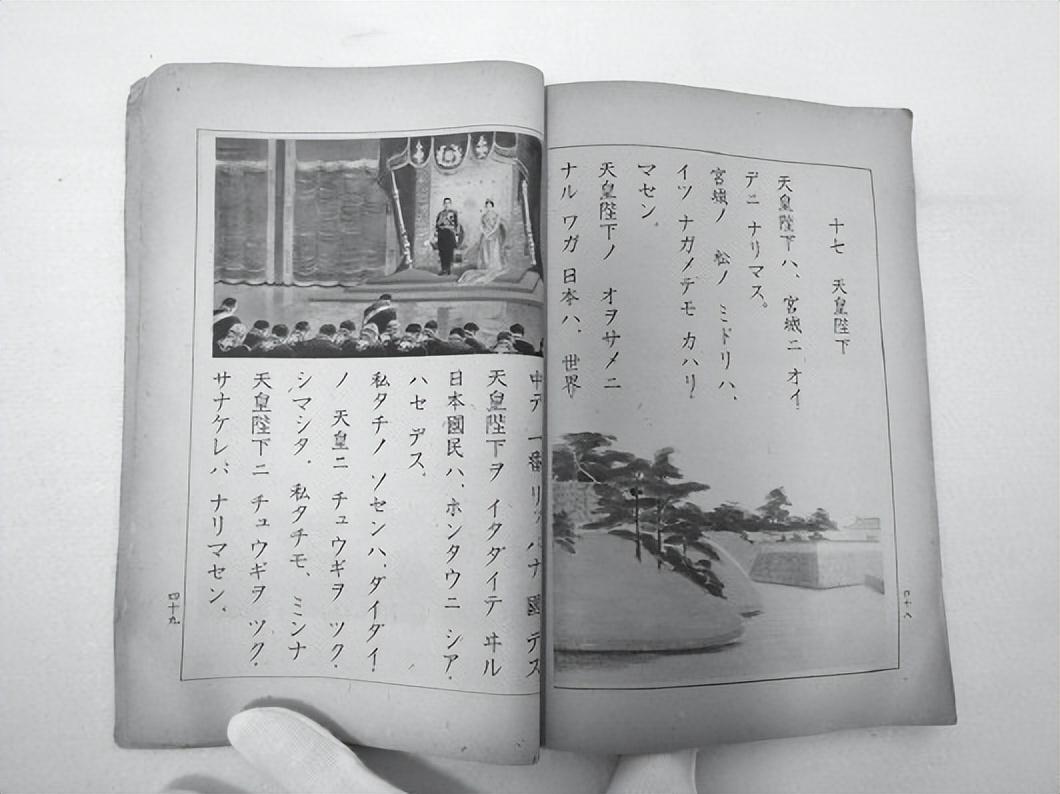 十七 天皇陛下
天皇陛下ハ、宮城ニ オイ
デニ ナリマス。
宮城ノ 松ノ ミドリハ、
イツ ナガメテモ カハリ
マセン。
天皇陛下ノ オヲサメニ
ナル ワガ 日本ハ、世界
中デ 一番 リッパナ 國デス
天皇陛下ヲ イタダイテ ヰル
日本國民ハ、ホンタウニ シア
ハセ デス。
私タチノ ソセンハ、ダイダイ
ノ 天皇ニ チュウギヲ ツク
シマシタ。私タチモ、ミンナ
天皇陛下ニ チュウギヲ ツク
サナケレバ ナリマセン。
四十九